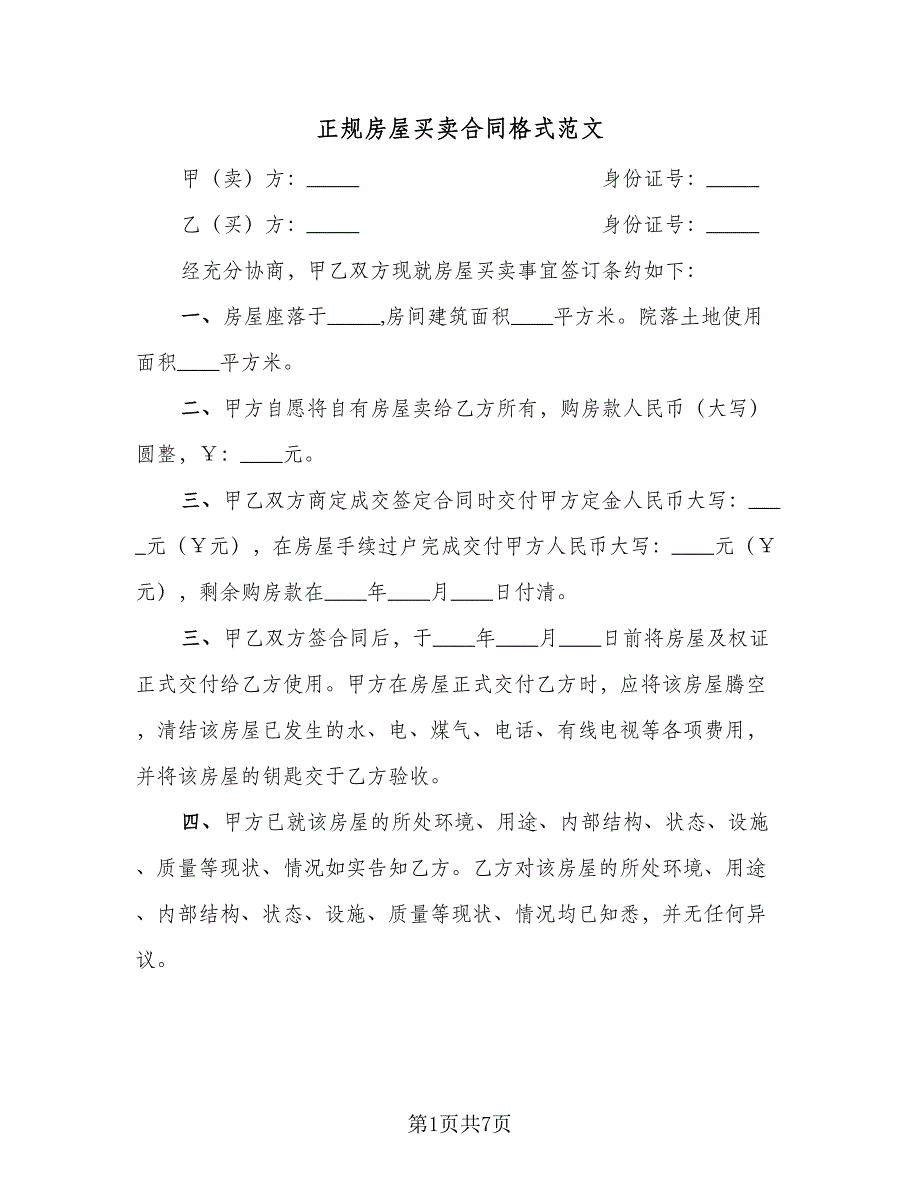 正规房屋买卖合同格式范文
甲（卖）方：_____ 身份证号：_____
乙（买）方：_____ 身份证号：_____
经充分协商，甲乙双方现就房屋买卖事宜签订条约如下：
一、房屋座落于_____,房间建筑面积____平方米。院落土地使用
面积____平方米。
二、甲方自愿将自有房屋卖给乙方所有，购房款人民币（大写）
圆整，￥：____元。
三、甲乙双方商定成交签定合同时交付甲方定金人民币大写：___
_元（￥元），在房屋手续过户完成交付甲方人民币大写：____元（￥
元），剩余购房款在____年____月____日付清。
三、甲乙双方签合同后，于____年____月____日前将房屋及权证
正式交付给乙方使用。甲方在房屋正式交付乙方时，应将该房屋腾空
，清结该房屋已发生的水、电、煤气、电话、有线电视等各项费用，
并将该房屋的钥匙交于乙方验收。
四、甲方已就该房屋的所处环境、用途、内部结构、状态、设施
、质量等现状、情况如实告知乙方。乙方对该房屋的所处环境、用途
、内部结构、状态、设施、质量等现状、情况均已知悉，并无任何异
议。
第1页共7页